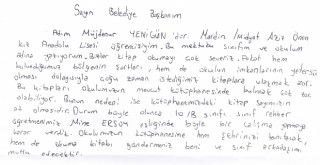 Sayın Belediye Başkanım
Adım Müjdenur YENİGÜN 'dür. Mardin/Midyat Aziz Önen
Kız Anadolu Lisesi öğrencisiyim. Bu mektubu sınıfım ve okulum
adına yazıyorum. Bizler kitap okumayı çok severiz. Fakat hem
bulunduğumuz bölgenin şartları, hem de okulun imkanlarının yetersiz
olması dolayısıyla çoğu zaman istediğimiz kitaplara ulaşmak zor.
Bu kitapları okulumuzun mevcut kütüphanesinde bulmak çok zor
olabiliyor. Bunun nedeni ise kütüphanemizdeki kitap sayımızın
az olmasıdır. Durum böyle olunca 10/B sınıfı sınıf rehber
öğretmenimiz Mine ERSOY eşliğinde böyle bir çalışma yapmaya
karar verdik. Okulumuzun kütüphanesine hem şehrinizi tanıtacak
hem de okuma kitabı göndermeniz beni ve sınıf arkadaşımı
mutlu edecektir.